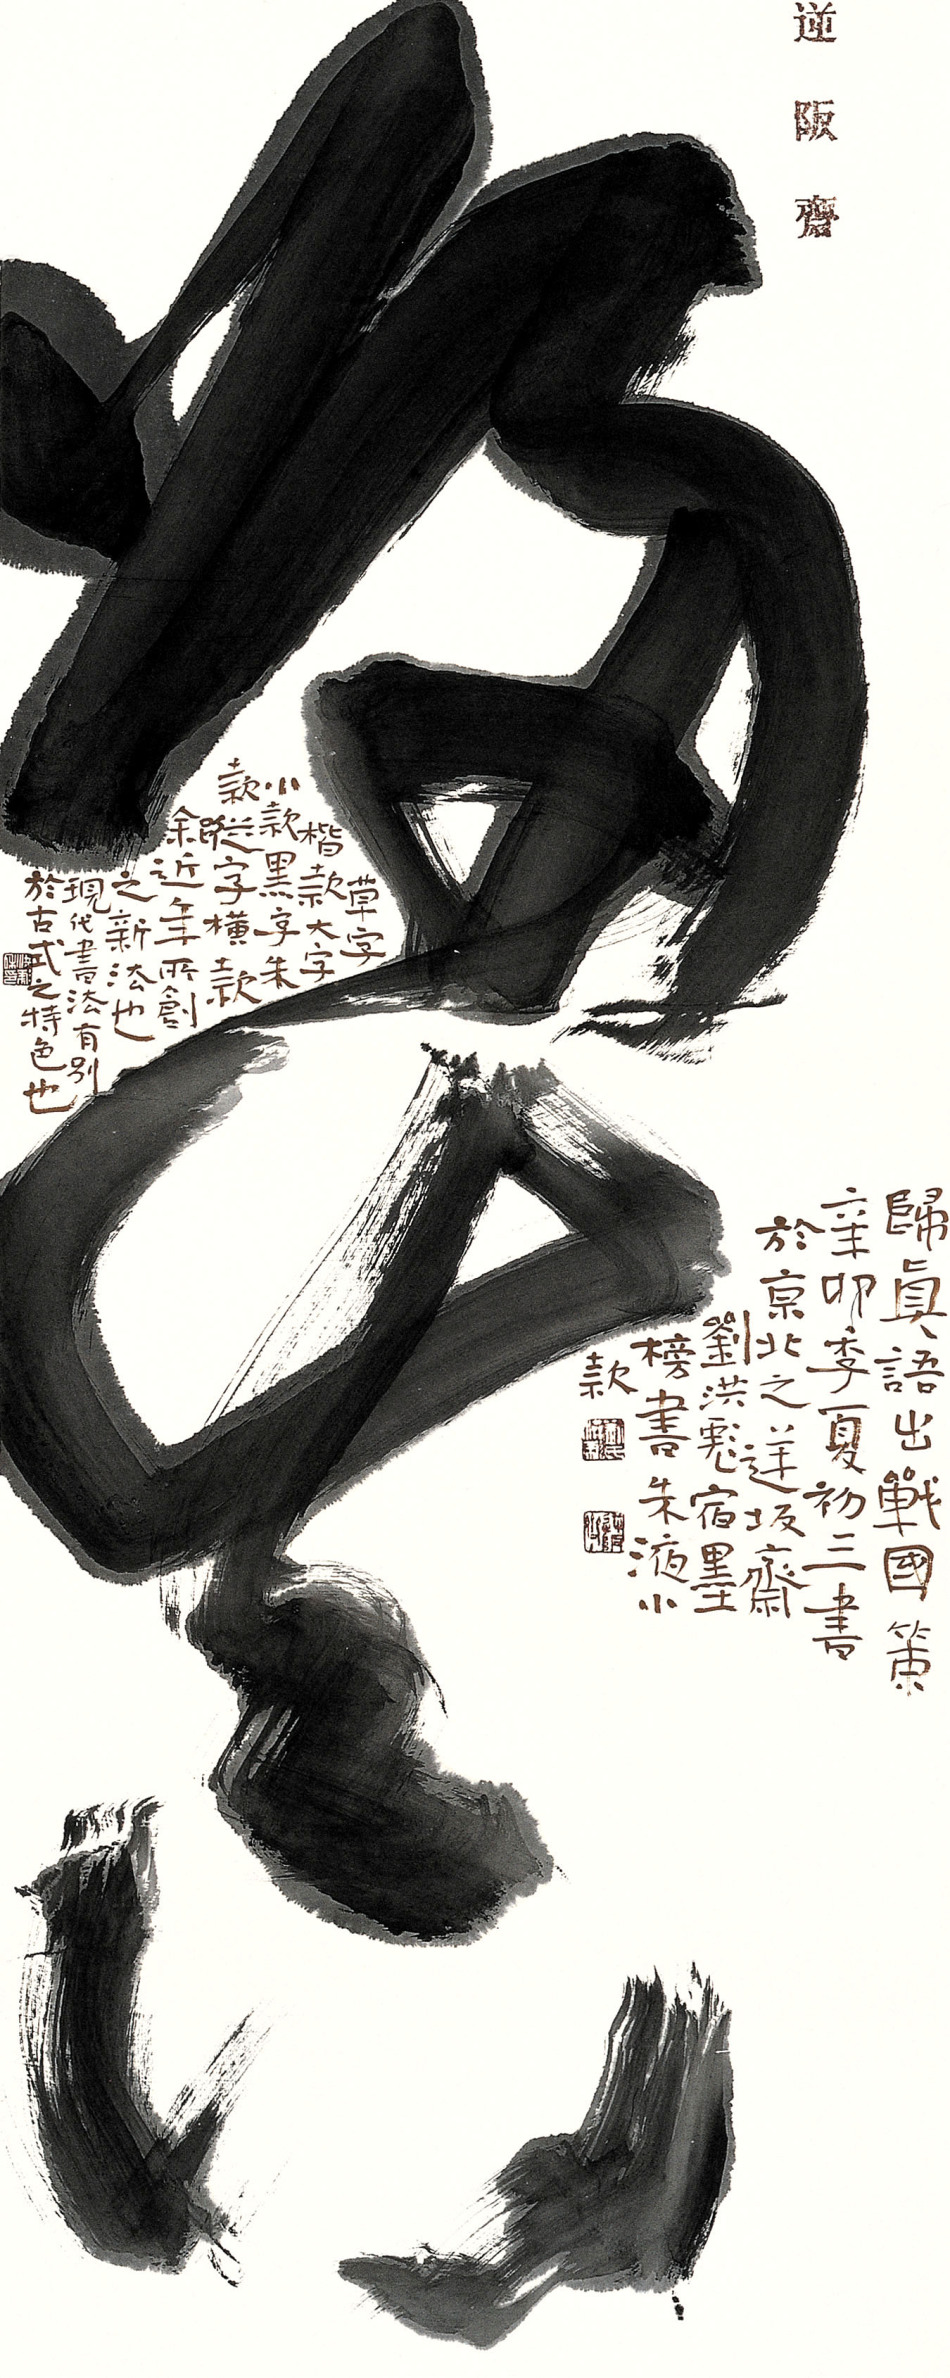 逆阪齋
歸真
歸眞語出戰國策
辛卯季夏初三書
於京北之逆坂齋
劉洪彪宿墨
榜書朱液小
款
草字
楷款大字
小款黑字朱
款縱字橫款
余近年所創
之新法也
現代書法有別
於古式之特色也